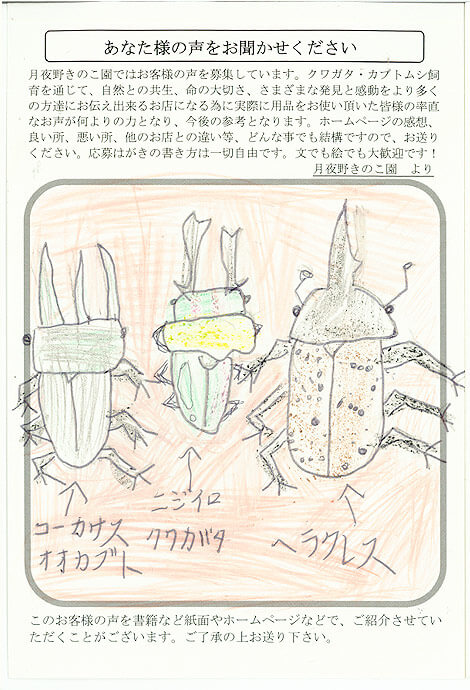 あなた様の声をお聞かせください
月夜野きのこ園ではお客様の声を募集しています。クワガタ・カブトムシ飼
育を通じて、自然との共生、命の大切さ、さまざまな発見と感動をより多く
の方達にお伝え出来るお店になる為に実際に用品をお使い頂いた皆様の率直
なお声が何よりの力となり、今後の参考となります。ホームページの感想、
良い所、悪い所、他のお店との違い等、どんな事でも結構ですので、お送り
ください。応募はがきの書き方は一切自由です。文でも絵でも大歓迎です！
月夜野きのこ園　より
コーカサス
オオカブト
ニジイロ
クワガタ
ヘラクレス
このお客様の声を書籍など紙面やホームページなどで、ご紹介させてい
ただくことがございます。ご了承の上お送り下さい。